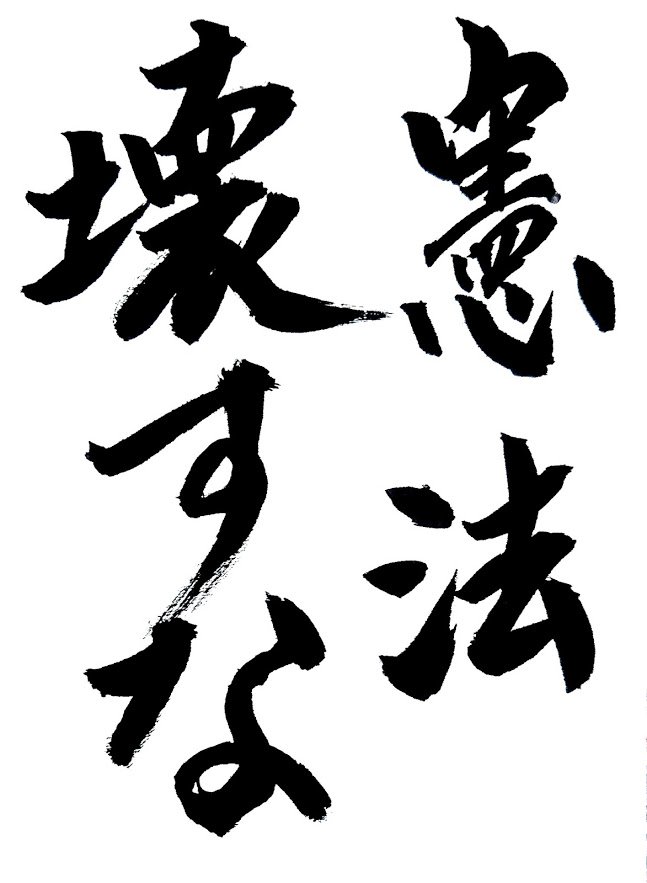 憲法
壊すな